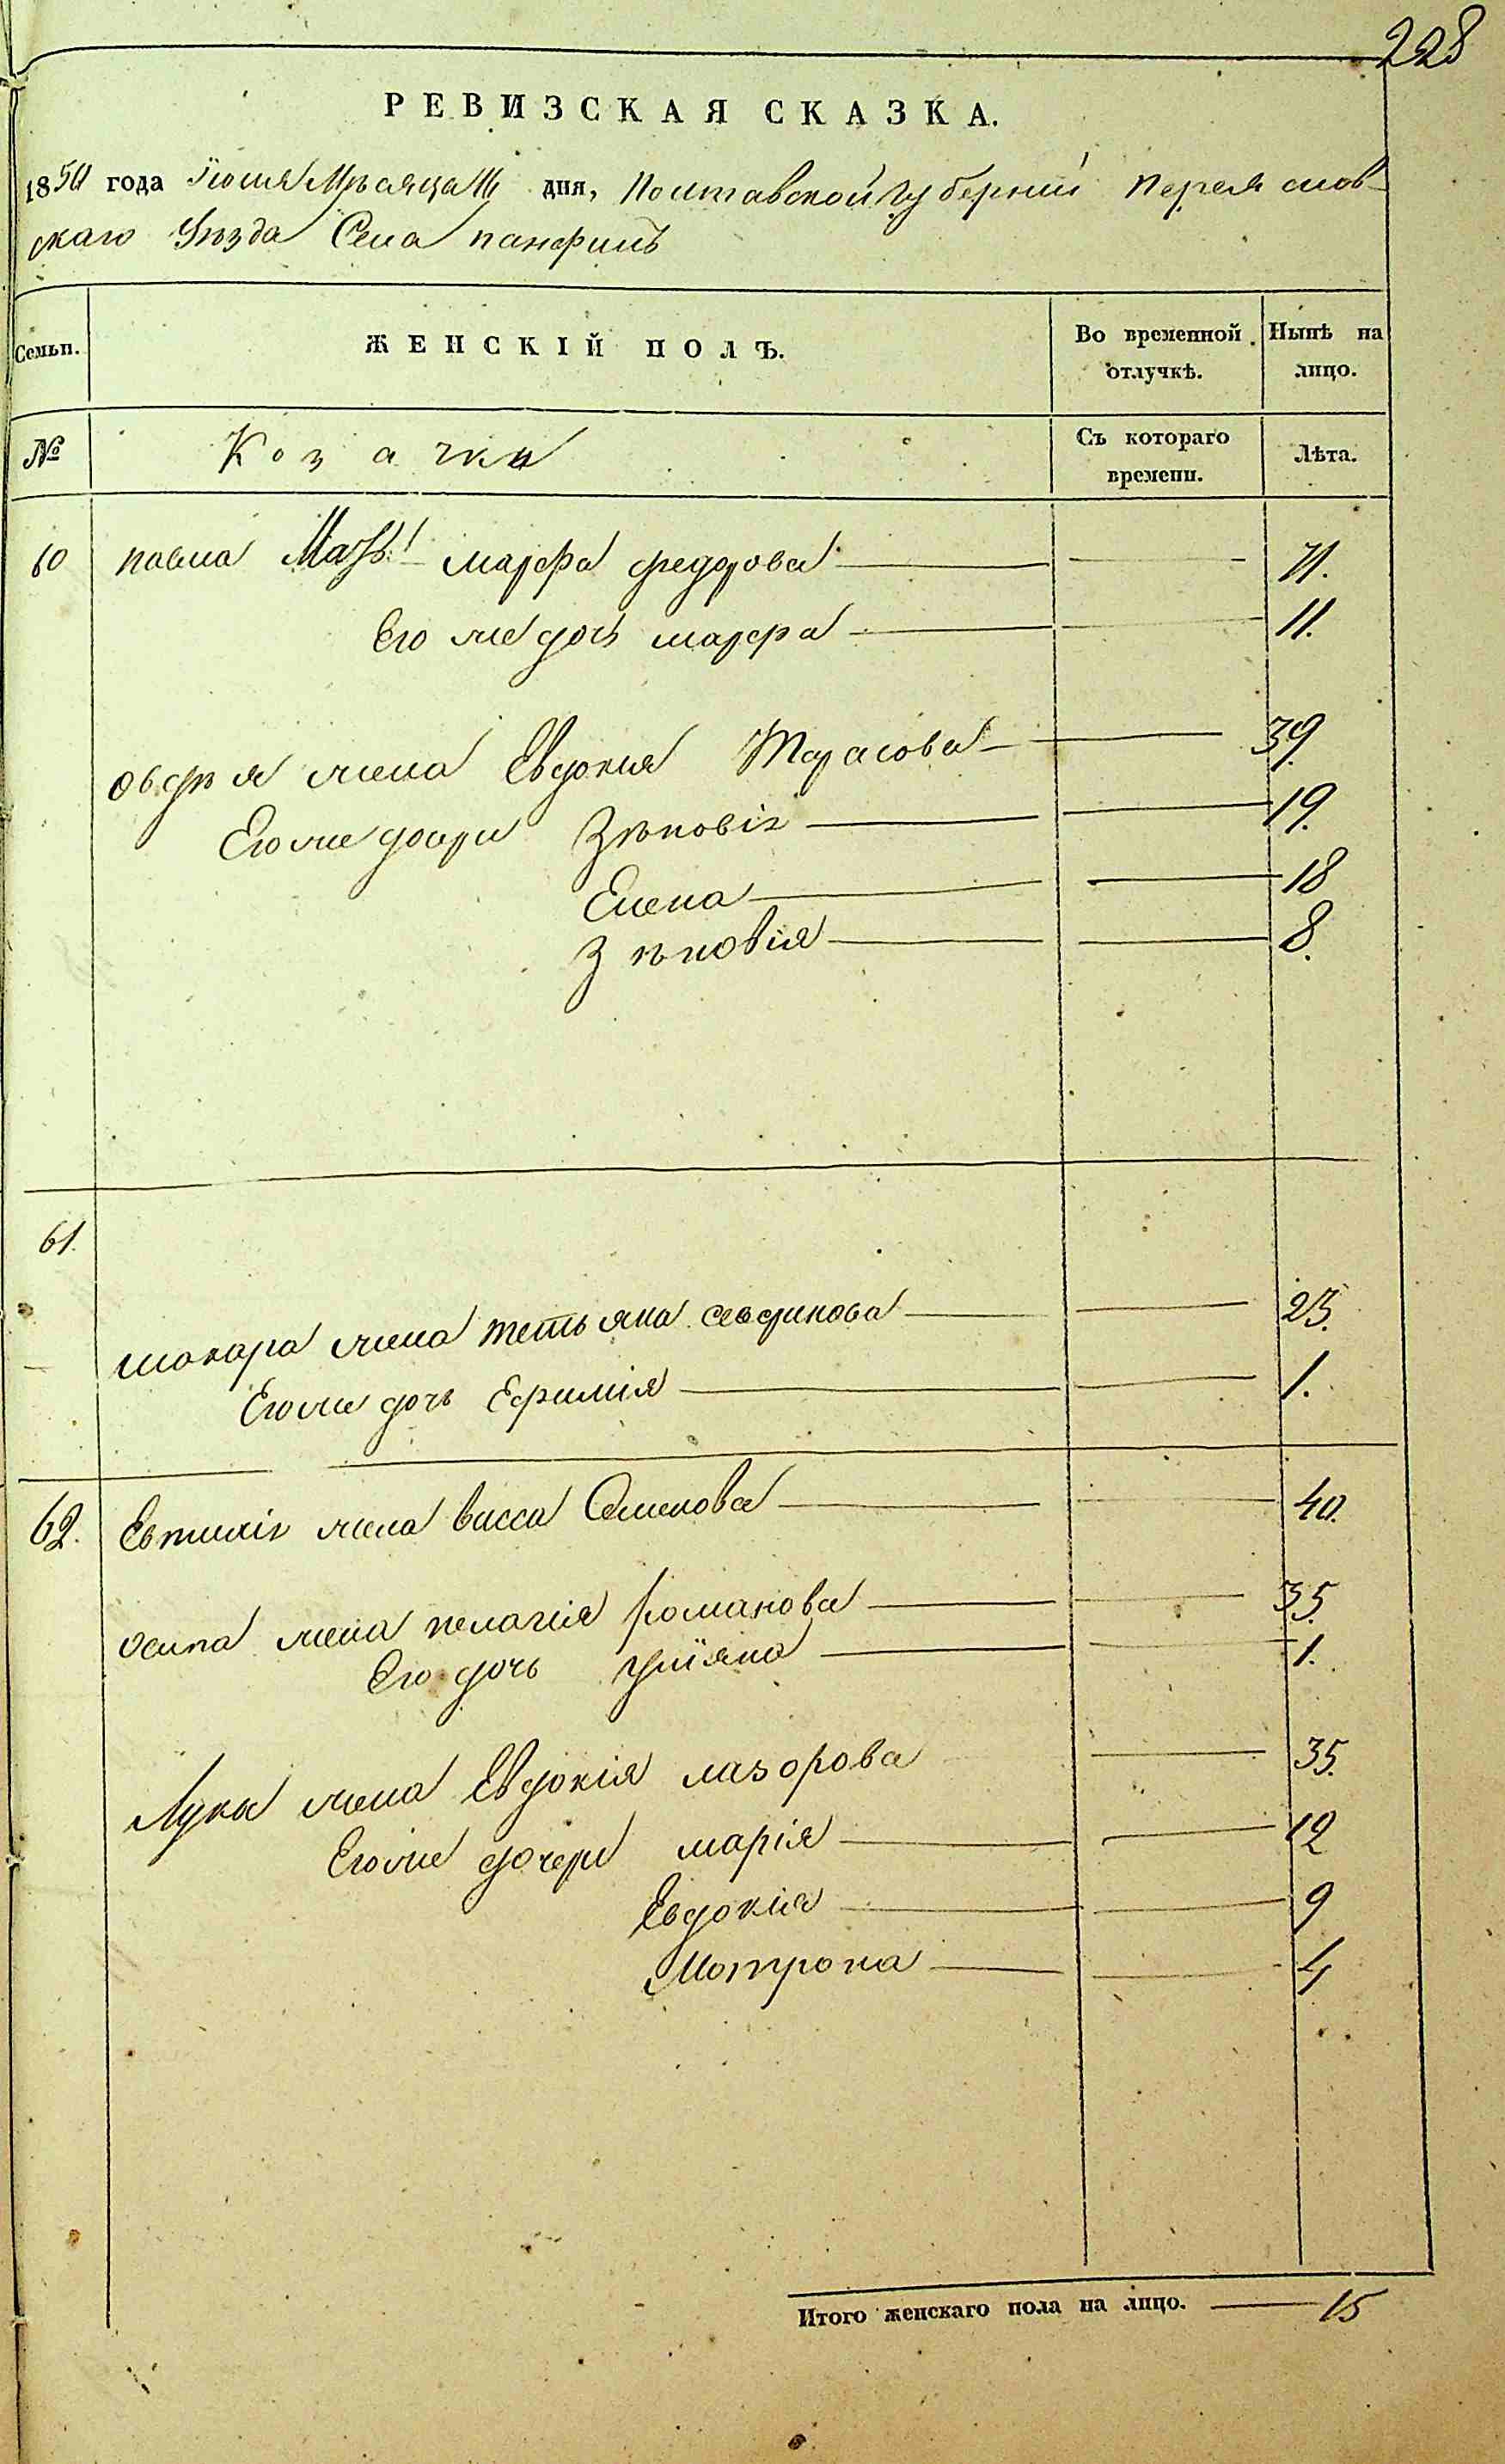 228
РЕВИЗСКАЯ СКАЗКА.
1850 года Іюля Мѣсяца дня, Полтавской губерніи переяслов-
скаго Уѣзда Села панфилъ
Семьи.
ЖЕНСКІЙ ПОЛЪ.
Во временной отлучкѣ.
Нынѣ на лицо.
№
Козачки
Съ котораго времени.
Лѣта.
60 павла марфа федорова 71.
Его же дочь марфа 11.
овдѣя жена Евдокия Тарасова 39
Его же дочери Зѣновія 19.
Елена 18
Зѣновія 8.
61.
макара жена тетьяна савфинова 23.
Его же дочь Ефимія 1.
62. Евтихія жена васса Семенова 40.
осипа жена пелагія романова 35.
Его дочь уліяна 1.
Луки жена Евдокія лазорова 35.
Его же дочери марія 12
Евдокія 9
Мотрона 4
Итого женскаго пола на лицо. 15